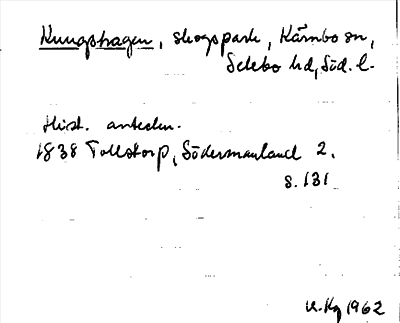 Kungshagen, skogspark, Kärnbo sn,
Selebo hd, Söd. l.
Hist. anteckn.
1838 Tollstorp, Södermanland 2.
s. 131
1962